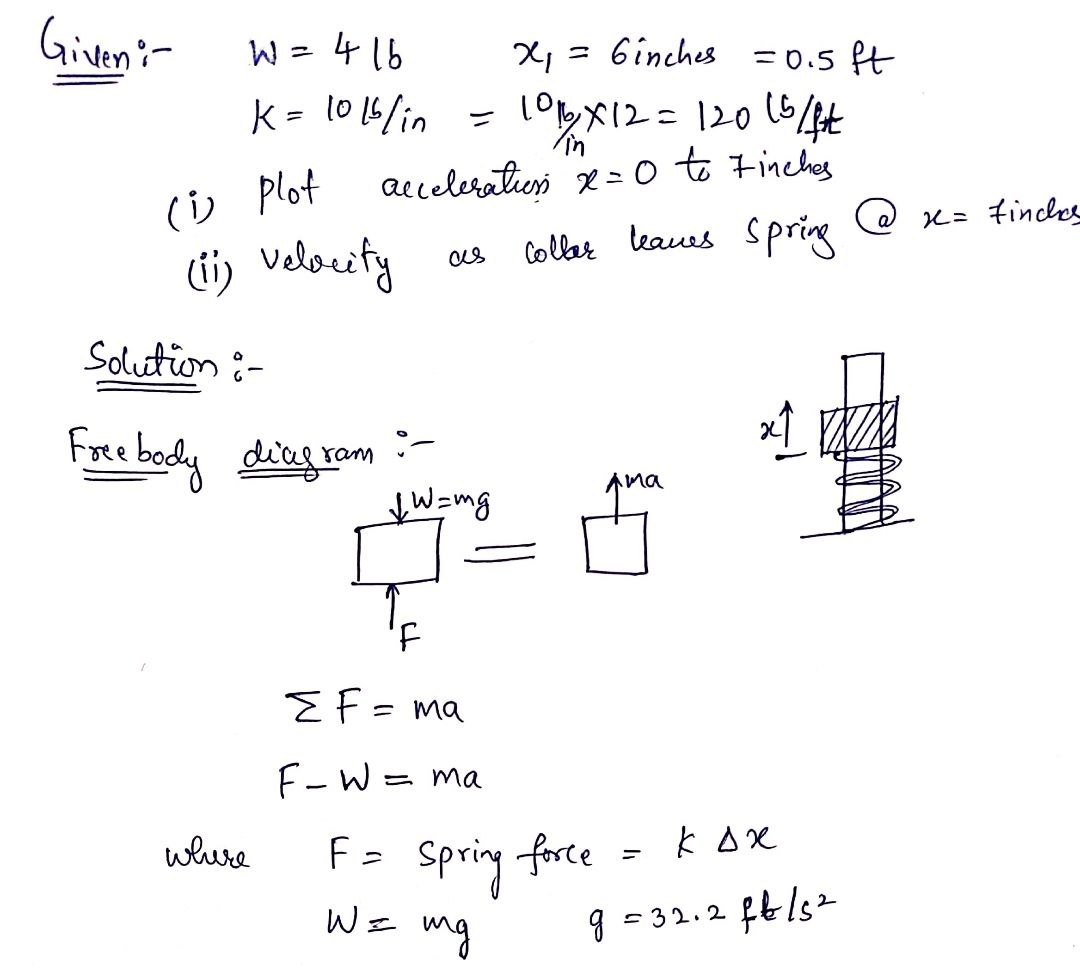 Given :- W = 4 lb x₁ = 6inches = 0.5 ft
K = 10 lb/in = 10 lb/in × 12 = 120 lb/ft
(i) plot acceleration x = 0 to 7inches
(ii) velocity as collar leaves spring @ x = 7inches
Solution :-
Free body diagram :-
x
W=mg
ma
=
F
Σ F = ma
F - W = ma
where F = spring force = k Δx
W = mg g = 32.2 ft/s²